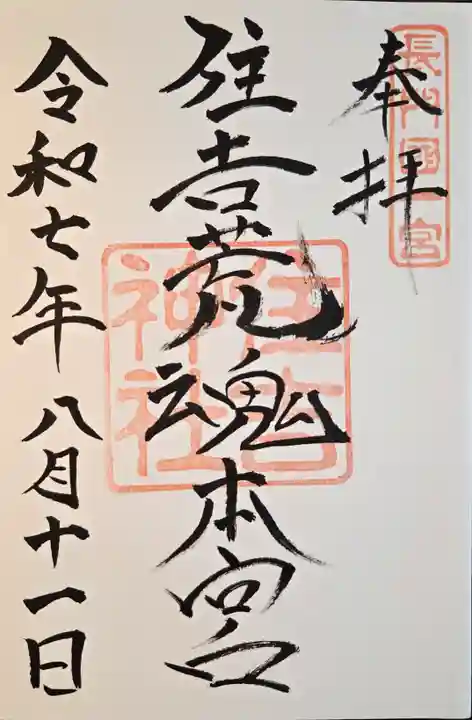 奉拝
長門國一宮
住吉荒魂本宮
住吉神社
令和七年 八月十一日